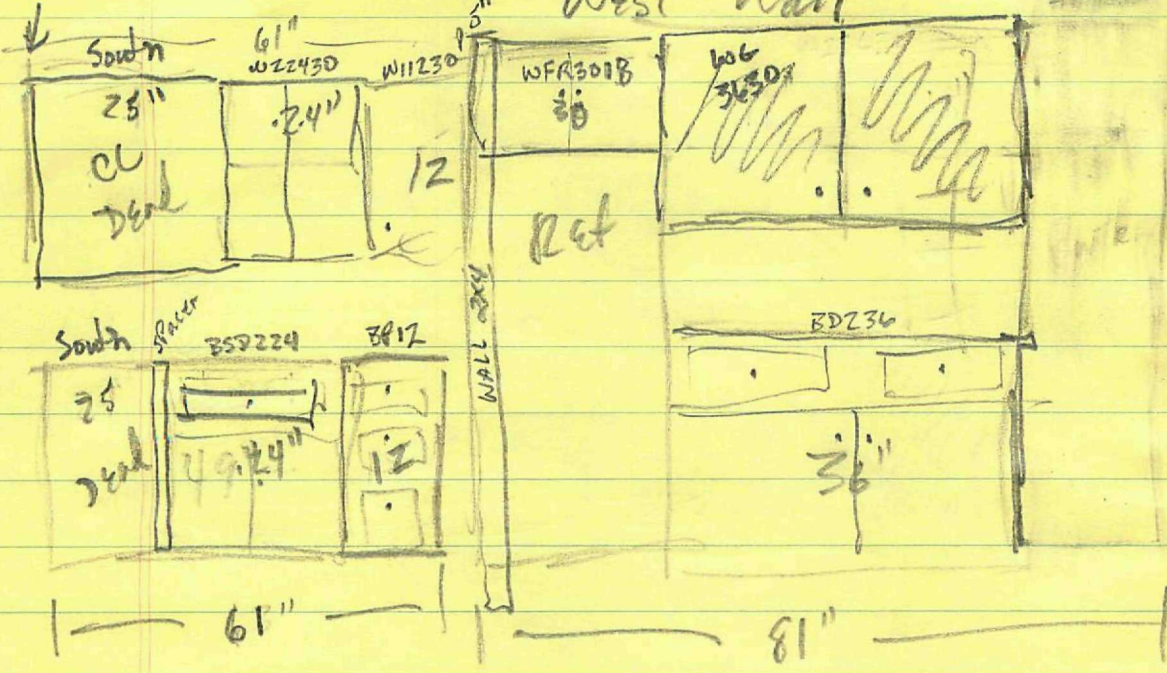 West Wall
South
61"
W22430
W11230
25"
CC
Dead
24"
12
WFR3018
30
WG
3630
Ref
WALL 2X4
South
SPACER
BSD224
BD236
25
Dead
24"
12
36"
61"
81"